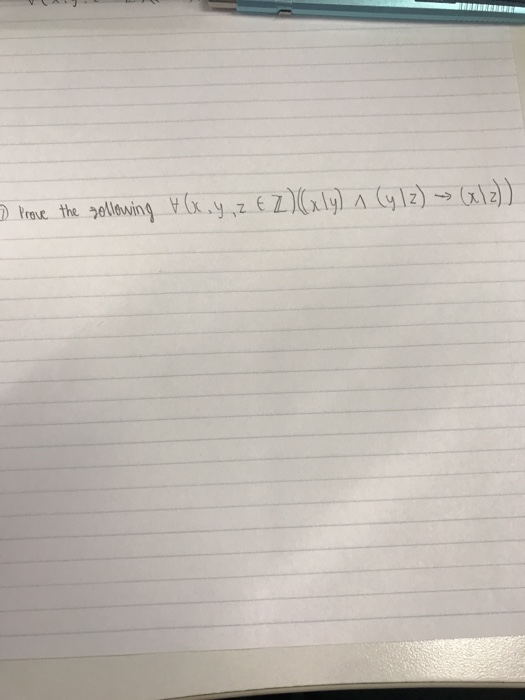 7) Prove the following ∀(x,y,z ∈ Z)((x|y) ∧ (y|z) → (x|z))